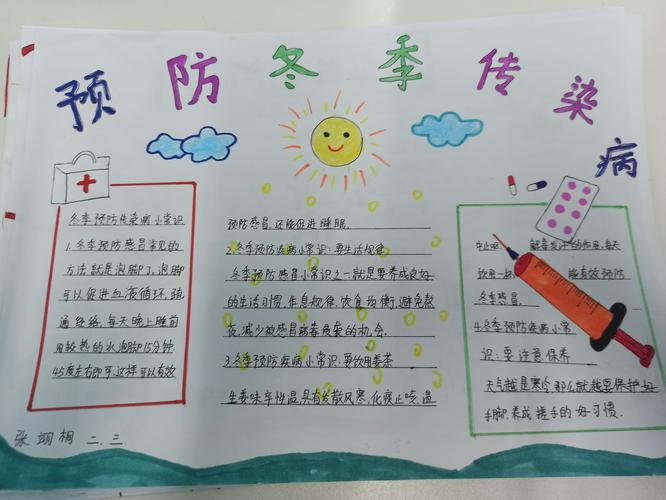 预防冬季传染病
冬季预防传染病小常识
1.冬季预防感冒常见的
方法就是泡脚了，泡脚
可以促进血液循环，疏
通经络，每天晚上睡前
用较热的水泡脚15分钟
45度左右即可，这样可以有效
预防感冒，还能促进睡眠.
2.冬季预防疾病小常识：要生活规律
冬季预防感冒小常识之一就是要养成良好
的生活习惯，作息规律，饮食均衡，避免熬
夜，减少被感冒病毒侵袭的机会.
3.冬季预防疾病小常识：要饮用姜茶
生姜味辛性温，具有发散风寒，化痰止咳，温
中止呕，解毒发汗的作用，每天
饮用一杯 能有效预防
冬季感冒.
4.冬季预防疾病小常
识：要注意保养
天气越是寒冷，那么就越要保护好
手脚，养成搓手的好习惯.
张翊桐 二.三